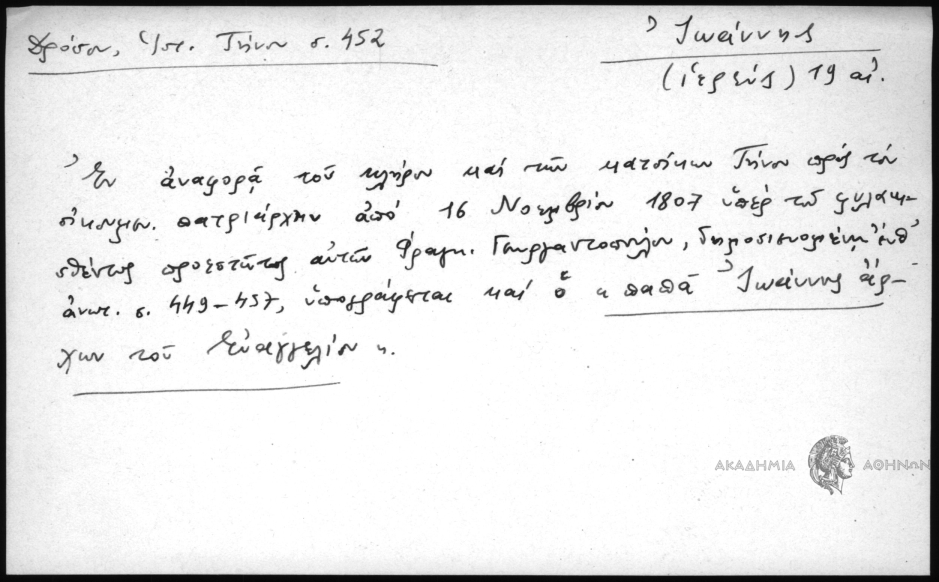 Δρόσου, Ἱστ. Τήνου σ. 452
Ἰωάννης
(ἱερεύς) 19 αἰ.
Ἐν ἀναφορᾷ τοῦ κλήρου καί τῶν κατοίκων Τήνου πρός τόν
οἰκουμ. πατριάρχην ἀπό 16 Νοεμβρίου 1807 ὑπέρ τοῦ φυλακι-
σθέντος προεστῶτος αὐτῶν Φραγκ. Γεωργαντοπούλου, δημοσιευομένῃ ἐνθ'
ἀνωτ. σ. 449-457, ὑπογράφεται καί ὁ « παπᾶ Ἰωάννης ἄρ-
χων τοῦ Εὐαγγελίου ».
ΑΚΑΔΗΜΙΑ ΑΘΗΝΩΝ